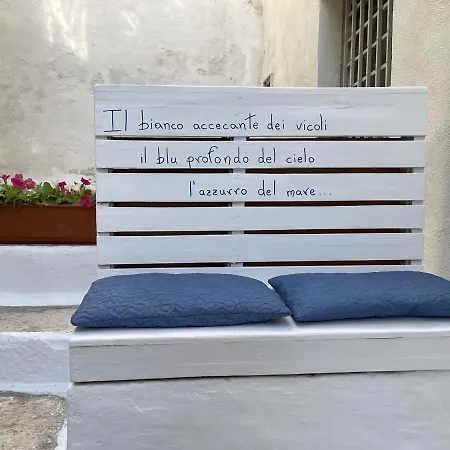 Il bianco accecante dei vicoli
il blu profondo del cielo
l'azzurro del mare...